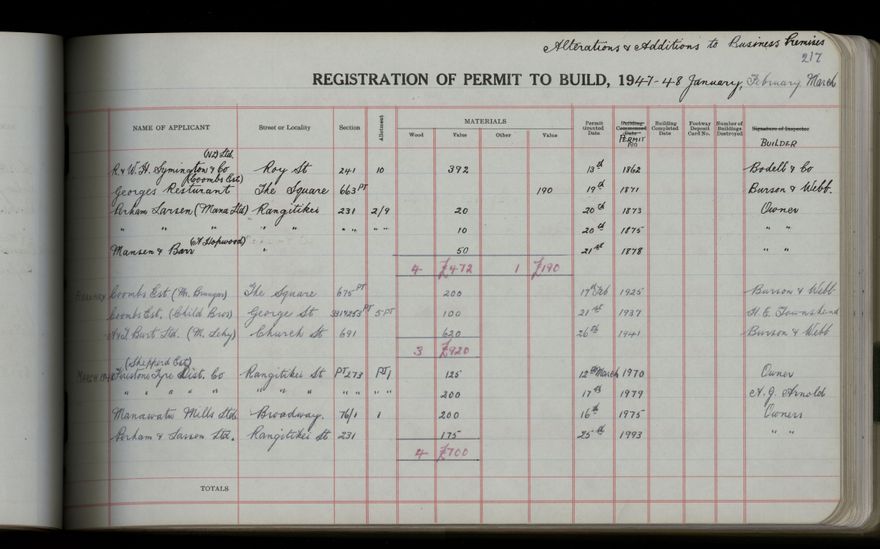 Alterations & Additions to Business Premises
217
REGISTRATION OF PERMIT TO BUILD, 1947-48 January, February March
NAME OF APPLICANT Street or Locality Section Allotment MATERIALS Wood Value Other Value Permit Granted Date Building Commenced Date PERMIT No Building Completed Date Footway Deposit Card No. Number of Buildings Destroyed Signature of Inspector BUILDER
(NZ) Ltd.
R & W.H. Symington & Co Roy St 241 10 392 13th 1862 Bodell & Co
(Coombs Est)
Georges Resturant The Square 663 PT 190 19th 1871 Burson & Webb.
Perham Larsen (Mana Ltd) Rangitikei 231 2/9 20 20th 1873 Owner
" " " " " " " " " 10 20th 1875 " "
(A. Hopwood)
Mansen & Barr " 50 21st 1878 " "
4 £472 1 £190
February Coombs Est (Mr. Brunyon) The Square 675 PT 200 17th Feb 1925 Burson & Webb
Coombs Est. (Child Bros) George St PT 5 PT 100 21st 1937 H.E. Townshend
A & T Burt Ltd. Church St 691 620 26th 1941 Burson & Webb
3 £920
(Shepperd Est)
MARCH 1948 Firestone Tyre Dist. Co Rangitikei St PT 273 PT 1 125 12th March 1970 Owner
" " " " " " " " " " " " 200 17th 1979 A.J. Arnold
Manawatu Mills Ltd Broadway. 76/1 1 200 16th 1975 Owners
Perham & Larsen Ltd. Rangitikei St 231 175 25th 1993 " "
4 £700
TOTALS